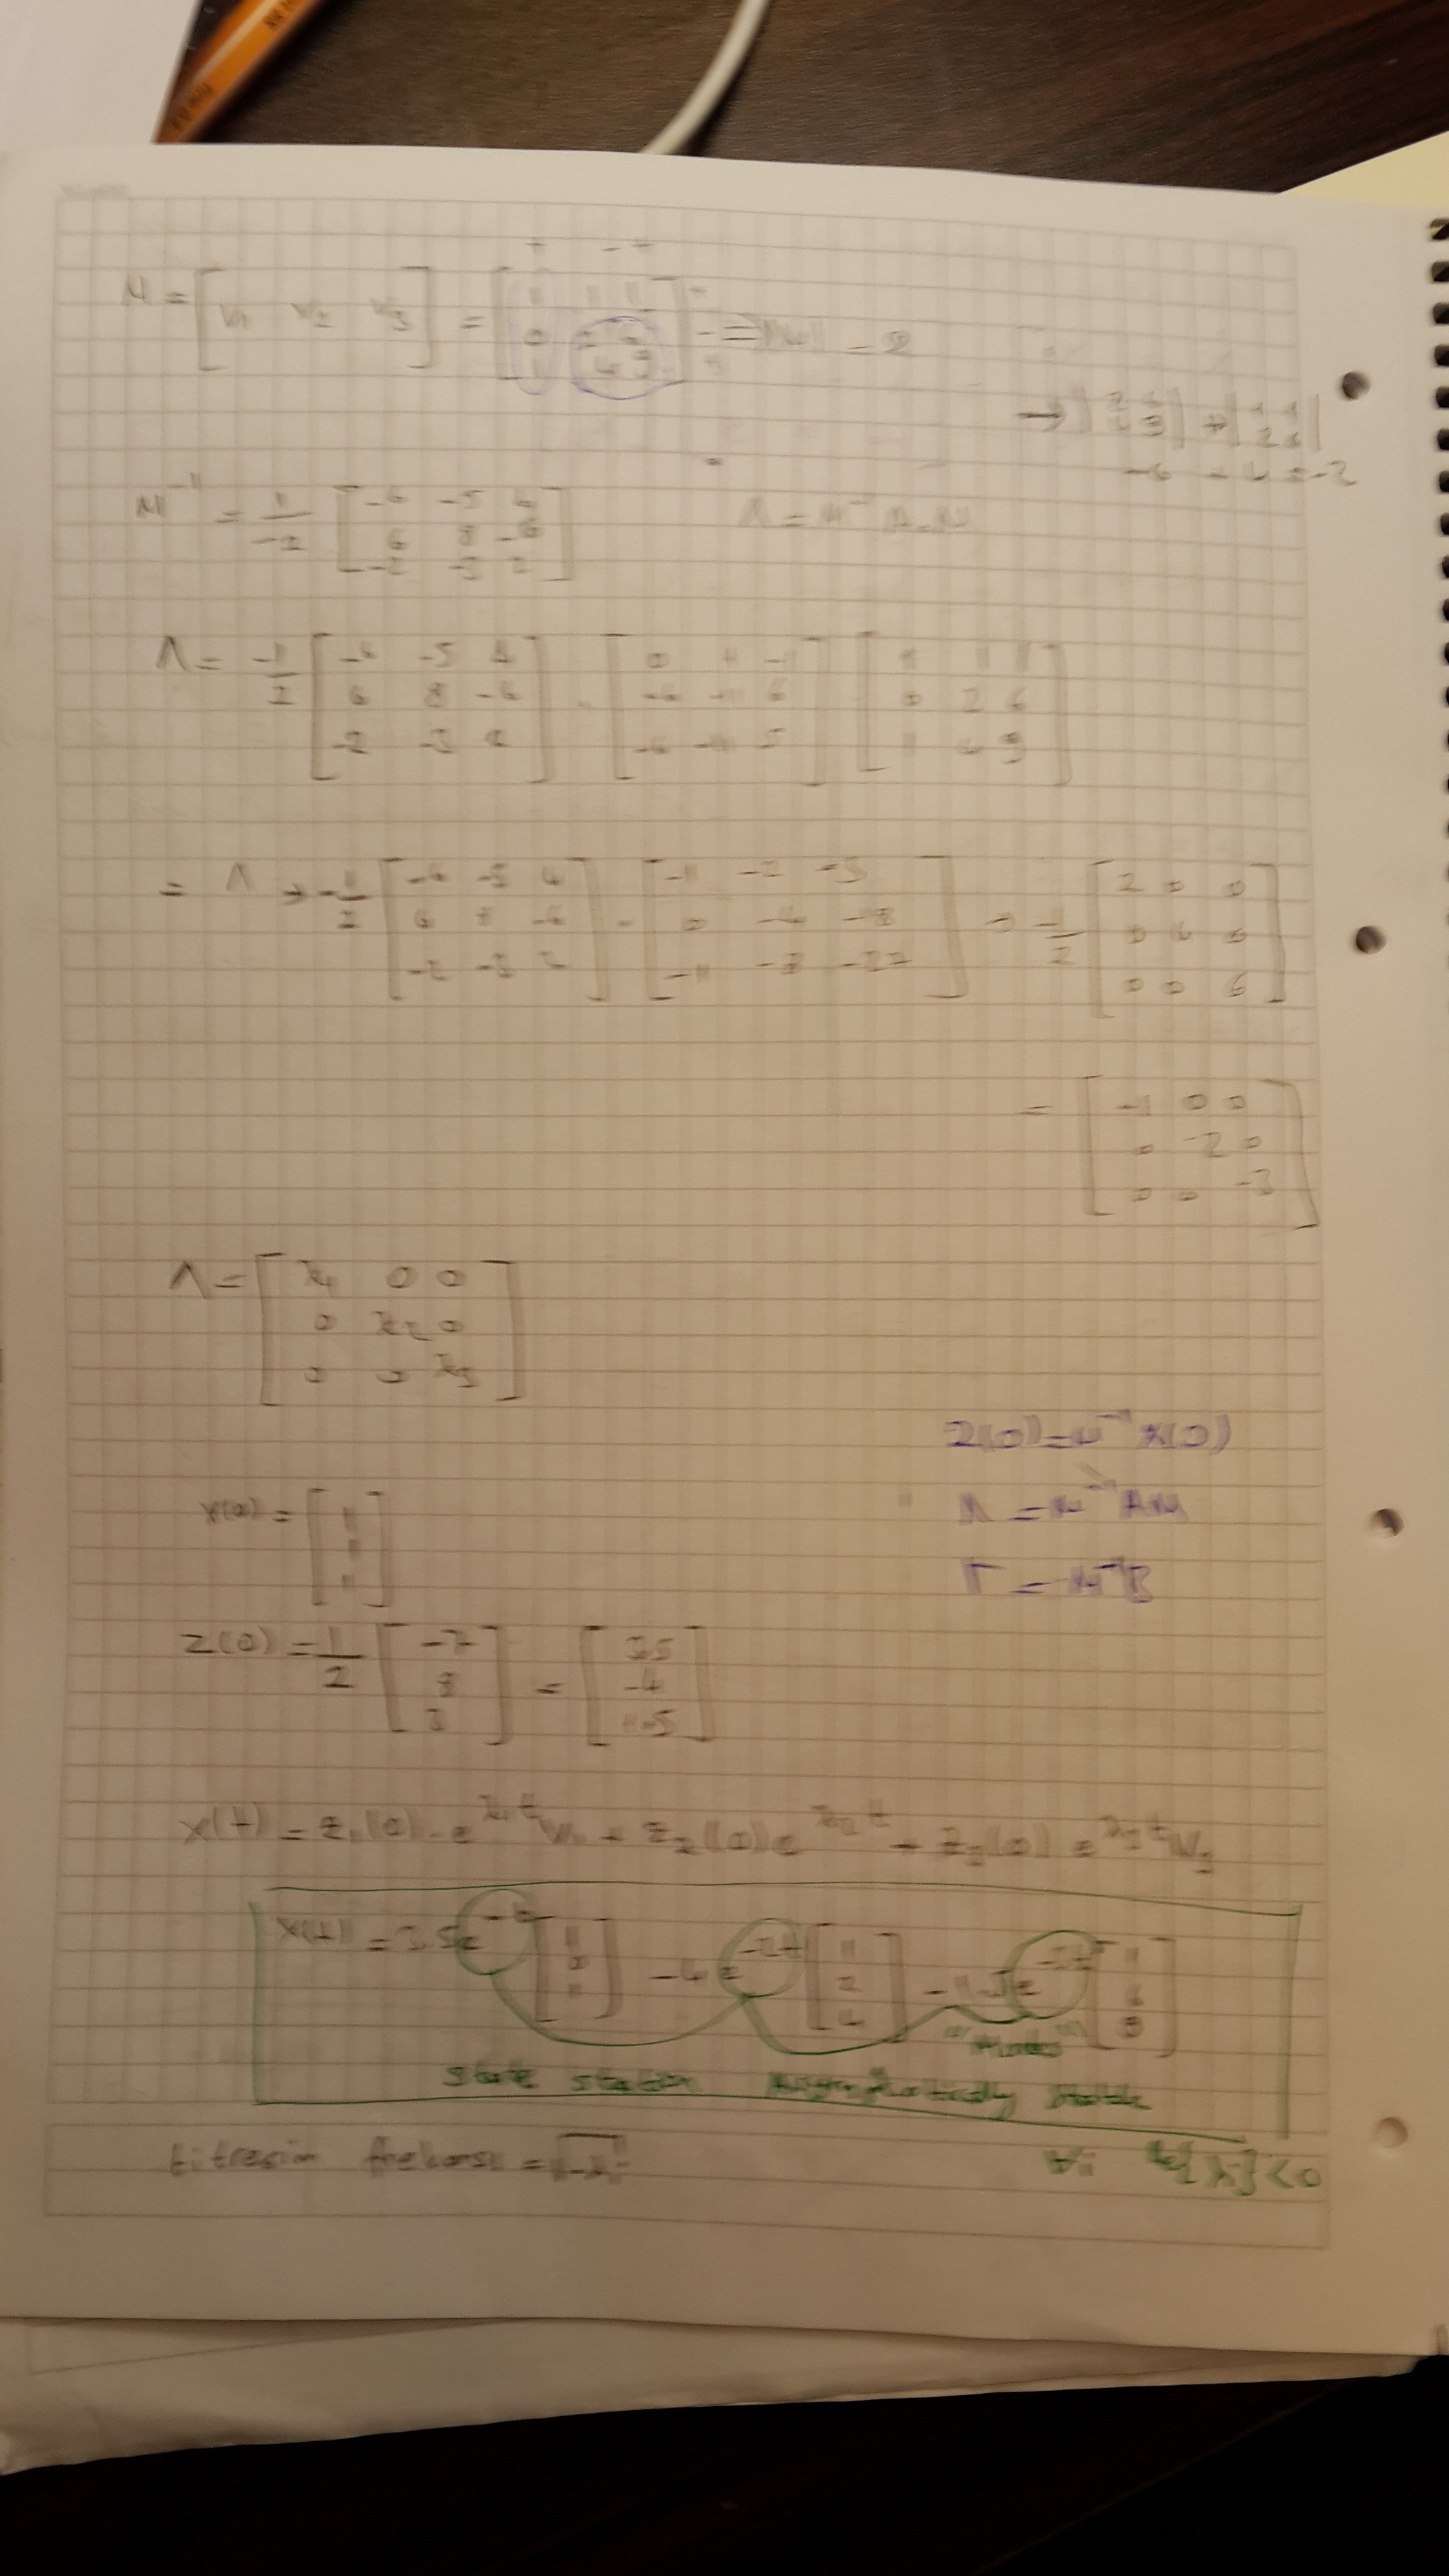 M = [ V1 V2 V3 ] = [ 1 1 1 ; 0 2 6 ; 1 4 9 ] => |M| = -2
→ | 2 6 ; 4 9 | + | 1 1 ; 2 6 |
-6 + 4 = -2
M⁻¹ = 1/-2 [ -6 -5 4 ; 6 8 -6 ; -2 -3 2 ]
Λ = M⁻¹ A M
Λ = -1/2 [ -6 -5 4 ; 6 8 -6 ; -2 -3 2 ] . [ 0 1 -1 ; -6 -11 6 ; -6 -11 5 ] [ 1 1 1 ; 0 2 6 ; 1 4 9 ]
= Λ → -1/2 [ -6 -5 4 ; 6 8 -6 ; -2 -3 2 ] . [ -1 -2 -3 ; 0 -4 -18 ; -1 -8 -27 ] → -1/2 [ 2 0 0 ; 0 4 0 ; 0 0 6 ]
= [ -1 0 0 ; 0 -2 0 ; 0 0 -3 ]
Λ = [ λ1 0 0 ; 0 λ2 0 ; 0 0 λ3 ]
z(0) = M⁻¹ x(0)
Λ = M⁻¹ A M
Γ = M⁻¹ B
x(0) = [ 1 ; 1 ; 1 ]
z(0) = -1/2 [ -7 ; 8 ; 3 ] = [ 3.5 ; -4 ; -1.5 ]
x(t) = z1(0) . e^λ1t V1 + z2(0) e^λ2t + z3(0) e^λ3t V3
x(t) = 3.5 e^-t [ 1 ; 0 ; 1 ] - 4 e^-2t [ 1 ; 2 ; 4 ] - 1.5 e^-3t [ 1 ; 6 ; 9 ]
"Modes"
state Asymptotically stable
∀i Re{λi} < 0
titresim frekansı =